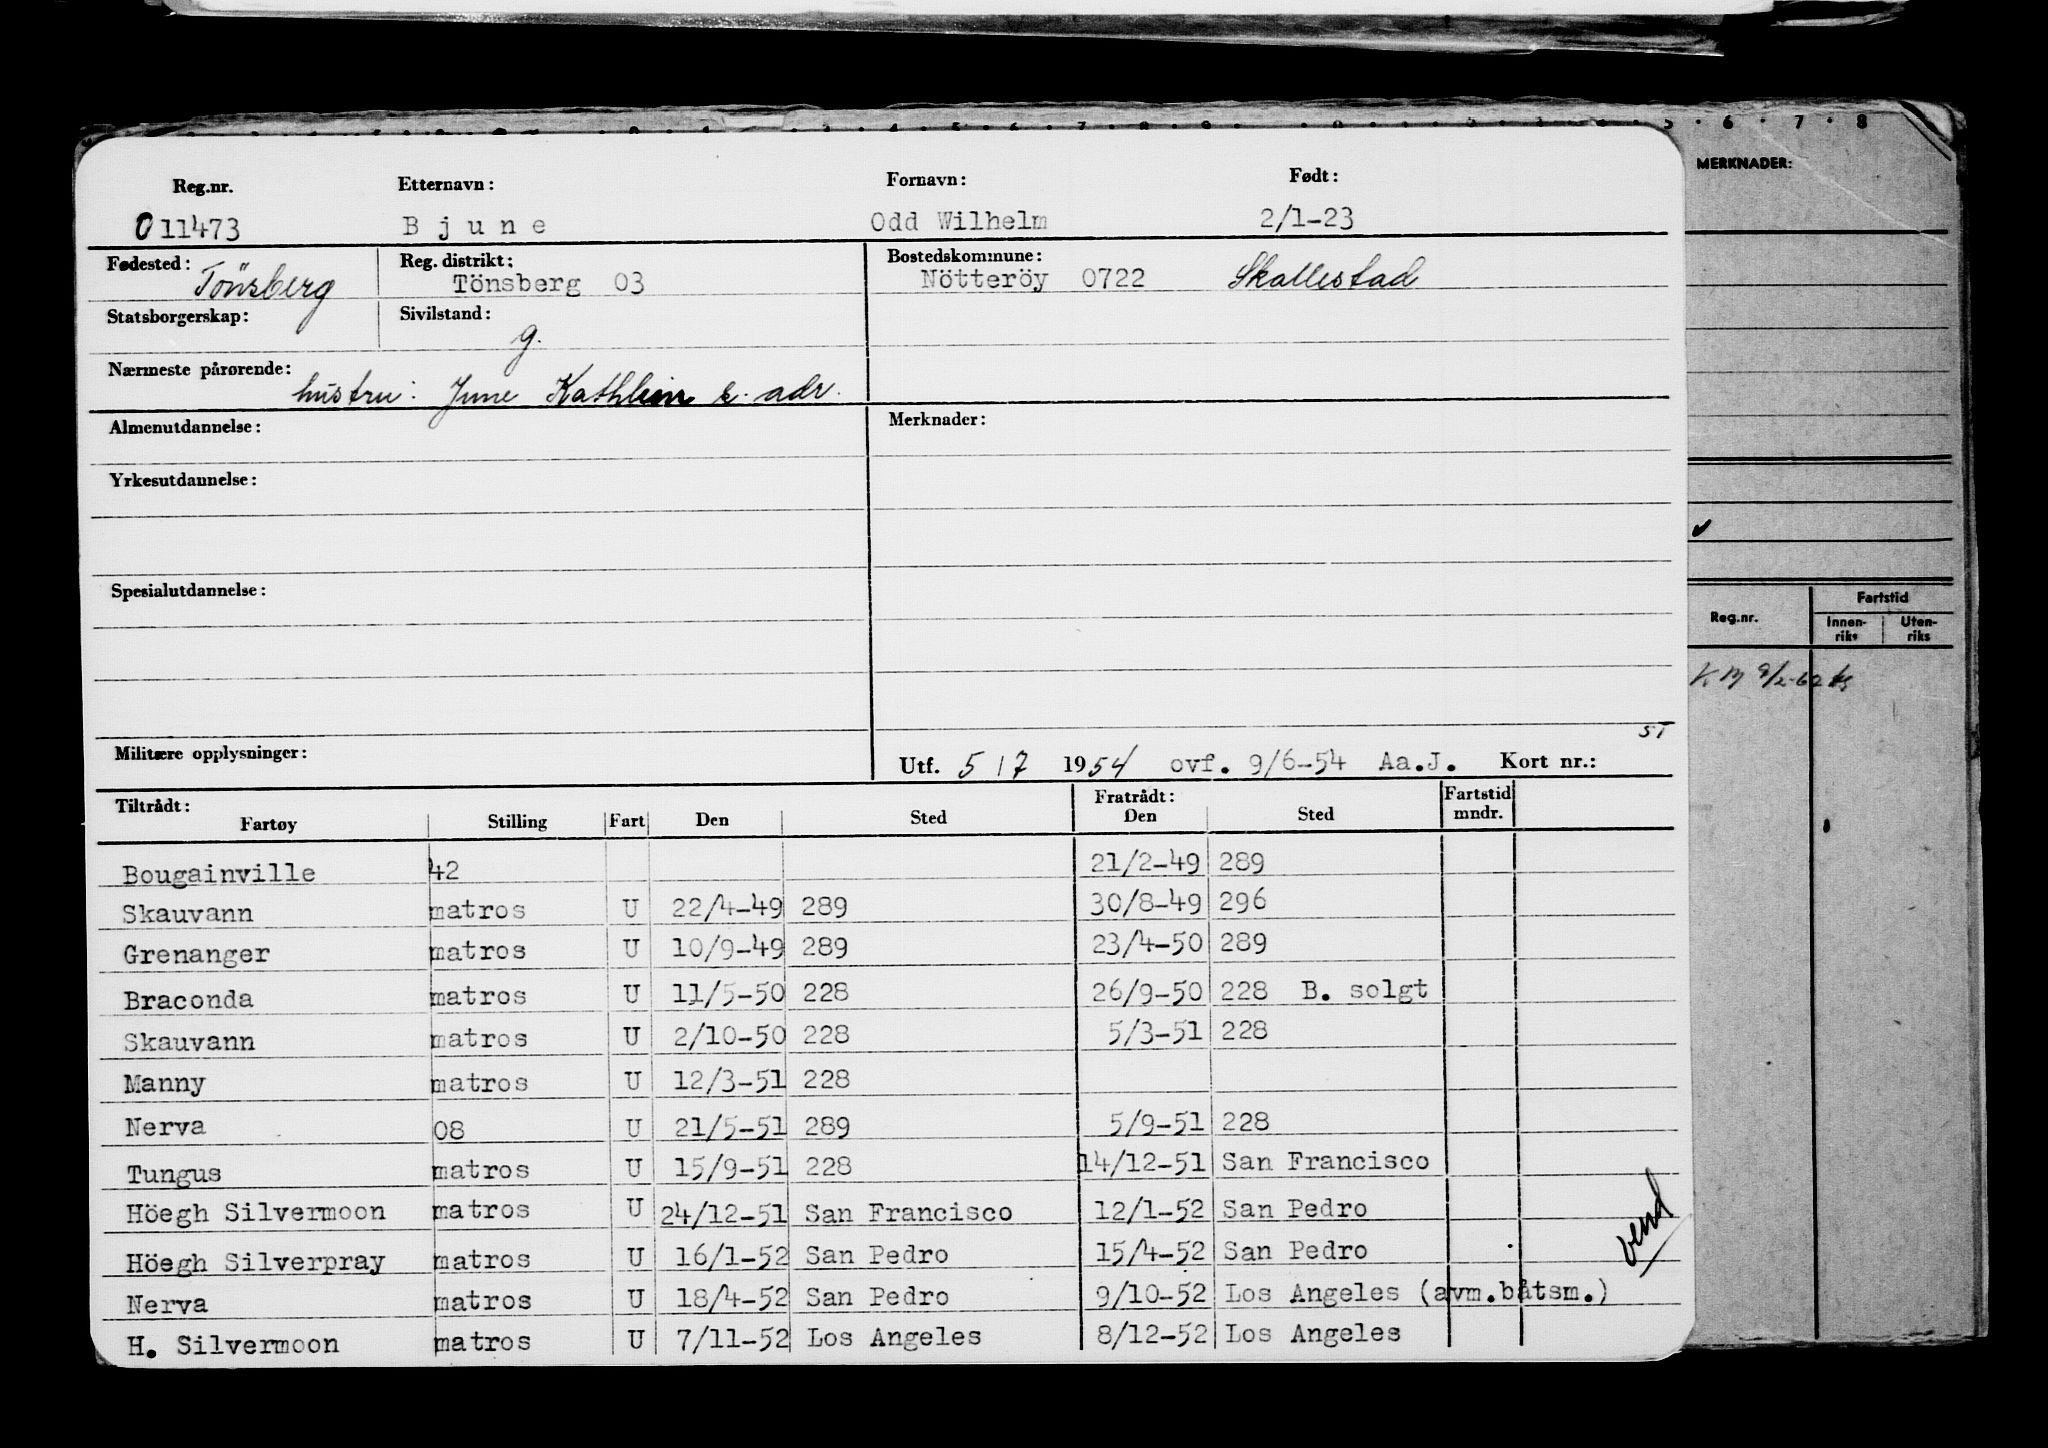 MERKNADER:
Reg.nr. Etternavn: Fornavn: Født:
011473 Bjune Odd Wilhelm 2/1-23
Fødested: Tönsberg Reg. distrikt: Tönsberg 03 Bostedskommune: Nötteröy 0722 Skallestad
Statsborgerskap: Sivilstand: g.
Nærmeste pårørende: hustru: June Kathleen s. adr.
Almenutdannelse: Merknader:
Yrkesutdannelse:
Spesialutdannelse:
Reg.nr. Fartstid
Innen-riks Uten-riks
ST
Militære opplysninger: Utf. 5/7 1954 ovf. 9/6-54 Aa.J. Kort nr.:
Tiltrådt: Fratrådt: Fartstid mndr.
Fartøy Stilling Fart Den Sted Den Sted
Bougainville 42 21/2-49 289
Skauvann matros U 22/4-49 289 30/8-49 296
Grenanger matros U 10/9-49 289 23/4-50 289
Braconda matros U 11/5-50 228 26/9-50 228 B. solgt
Skauvann matros U 2/10-50 228 5/3-51 228
Manny matros U 12/3-51 228
Nerva 08 U 21/5-51 289 5/9-51 228
Tungus matros U 15/9-51 228 14/12-51 San Francisco
Höegh Silvermoon matros U 24/12-51 San Francisco 12/1-52 San Pedro
Höegh Silverpray matros U 16/1-52 San Pedro 15/4-52 San Pedro
Nerva matros U 18/4-52 San Pedro 9/10-52 Los Angeles (avm.båtsm.)
H. Silvermoon matros U 7/11-52 Los Angeles 8/12-52 Los Angeles
vend